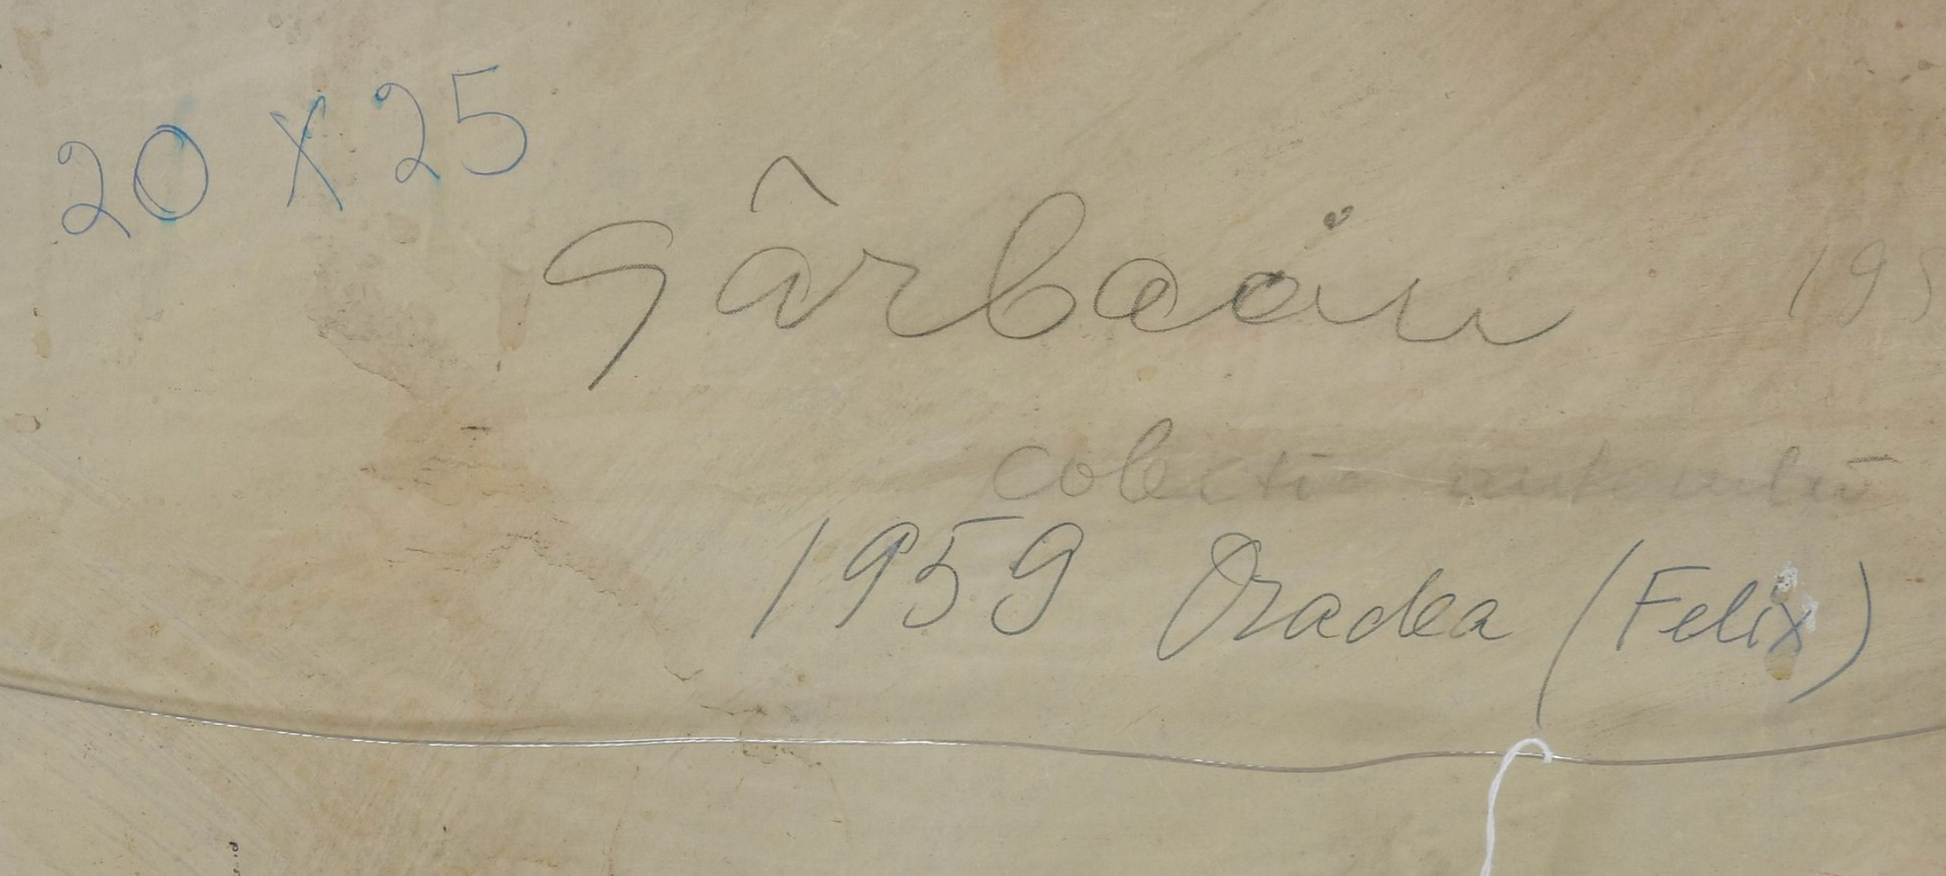 20 X 25
Gârbaciu 195
colectia autorului
1959 Oradea (Felix)